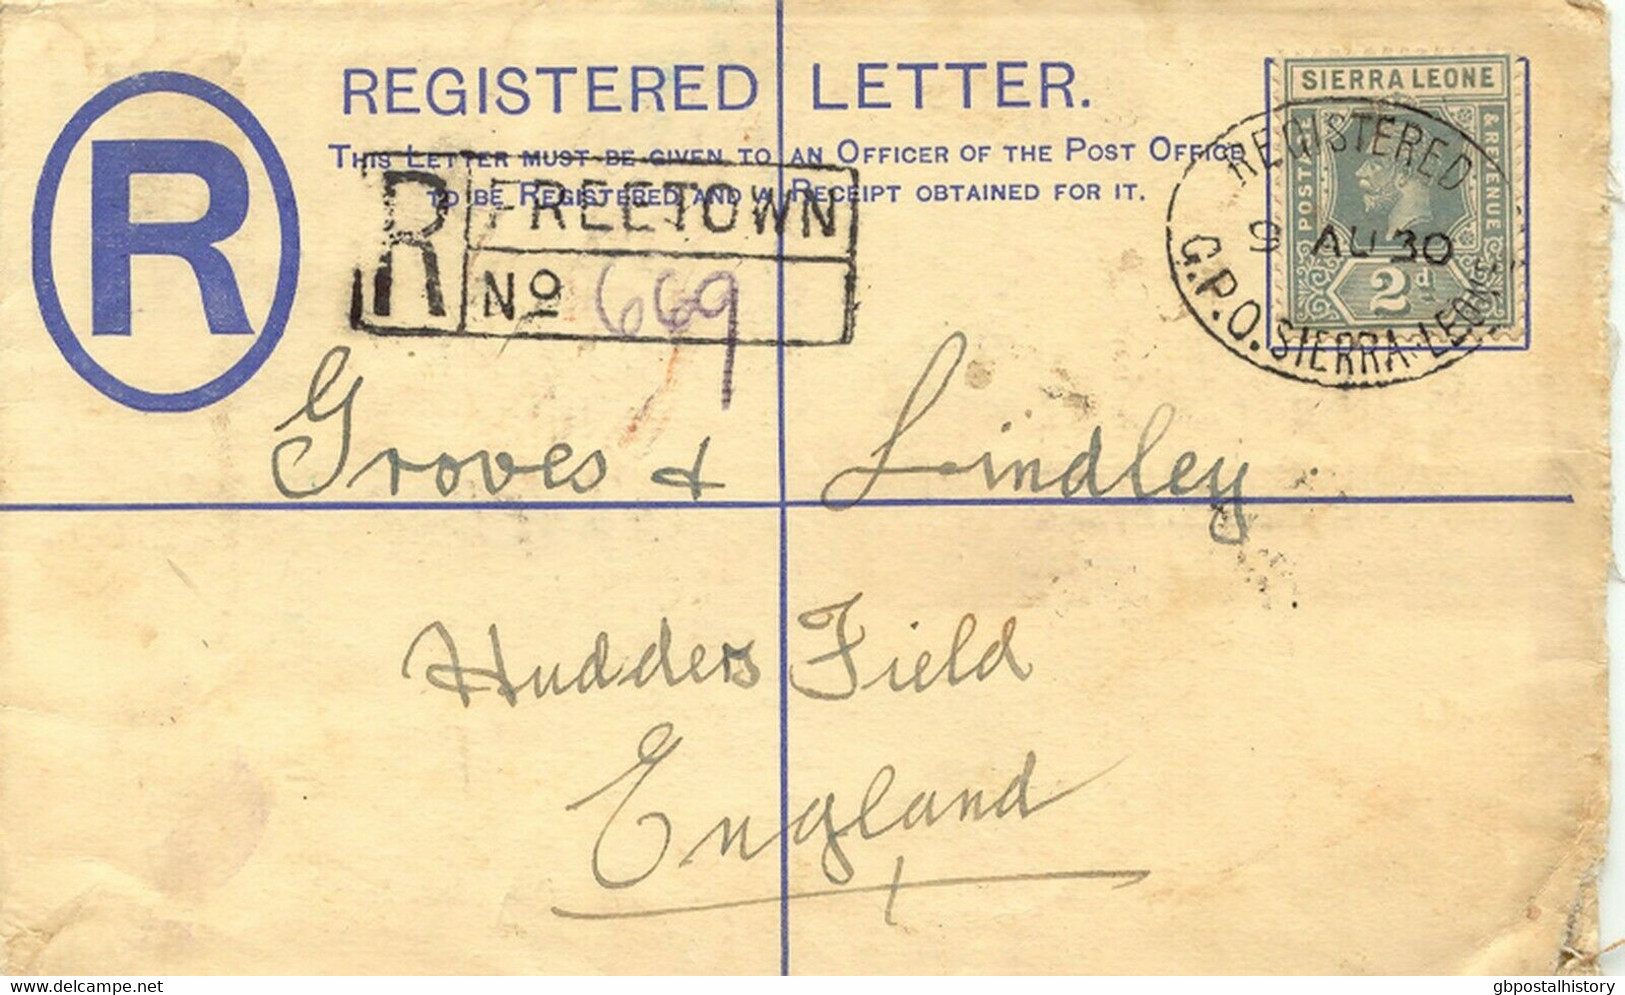 R
REGISTERED LETTER.
THIS LETTER MUST BE GIVEN TO AN OFFICER OF THE POST OFFICE
TO BE REGISTERED AND A RECEIPT OBTAINED FOR IT.
SIERRA LEONE
POSTAGE & REVENUE
2d
REGISTERED
9 AU 30
G.P.O. SIERRA LEONE
R FREETOWN
No 669
Groves & Lindley
Hudders Field
England
delcampe.net
gbpostalhistory